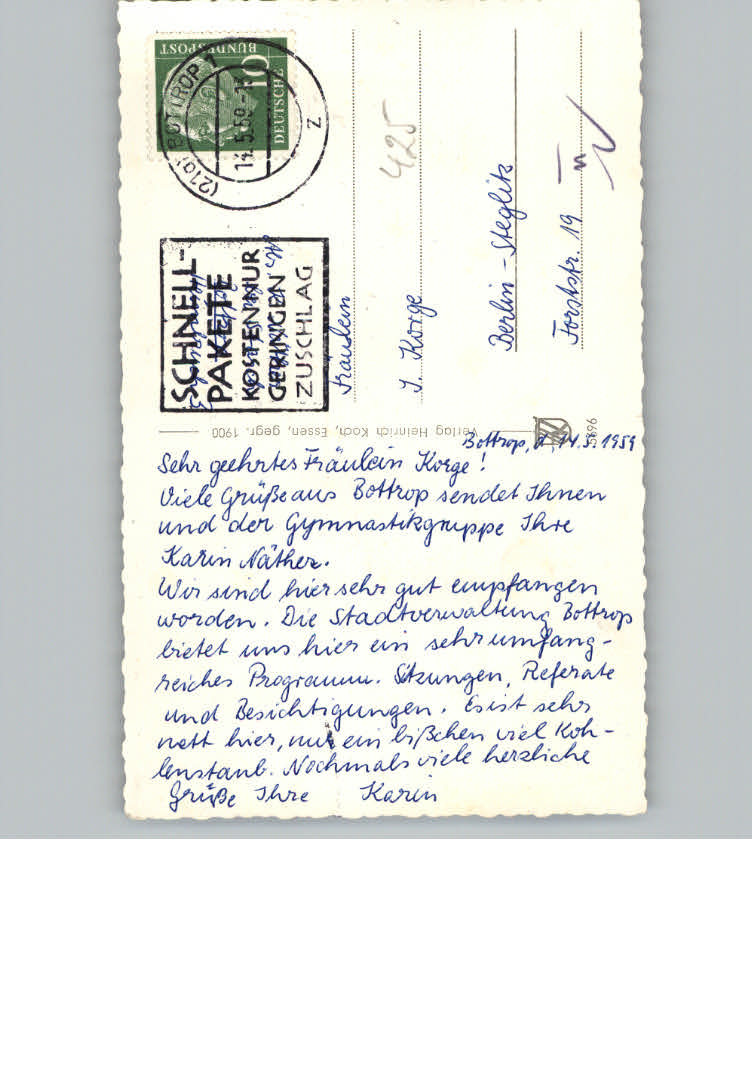 DEUTSCHE
BUNDESPOST
10
(21a) BOTTROP 1
14.5.59-1
z
SCHNELL-
PAKETE
KOSTEN NUR
GERINGEN
ZUSCHLAG
425
Fräulein
I. Korge
Berlin-Steglitz
Forststr. 19
Verlag Heinrich Koch, Essen, gegr. 1900
5896
Bottrop, d. 14.5.1959
Sehr geehrtes Fräulein Korge!
Viele Grüße aus Bottrop sendet Ihnen
und der Gymnastikgruppe Ihre
Karin Näther.
Wir sind hier sehr gut empfangen
worden. Die Stadtverwaltung Bottrop
bietet uns hier ein sehr umfang-
reiches Programm. Sitzungen, Referate
und Besichtigungen. Es ist sehr
nett hier, nur ein bißchen viel Koh-
lenstaub. Nochmals viele herzliche
Grüße Ihre Karin